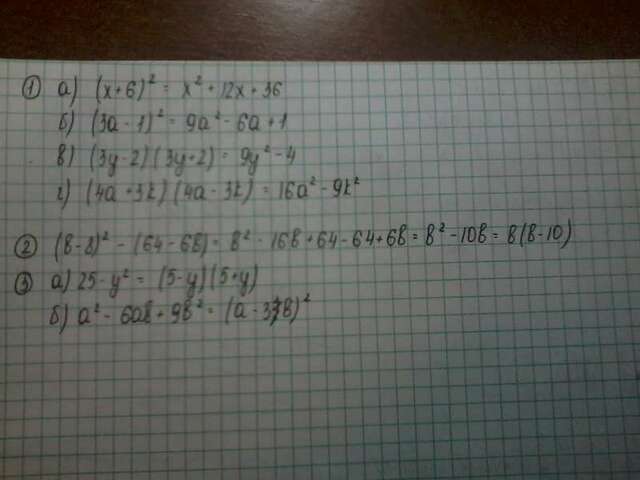 ① а) (x+6)² = x² + 12x + 36
б) (3a - 1)² = 9a² - 6a + 1
в) (3y - 2)(3y + 2) = 9y² - 4
г) (4a + 3k)(4a - 3k) = 16a² - 9k²
② (в - 8)² - (64 - 6в) = в² - 16в + 64 - 64 + 6в = в² - 10в = в(в - 10)
③ а) 25 - y² = (5 - y)(5 + y)
б) a² - 6aв + 9в² = (a - 3в)²